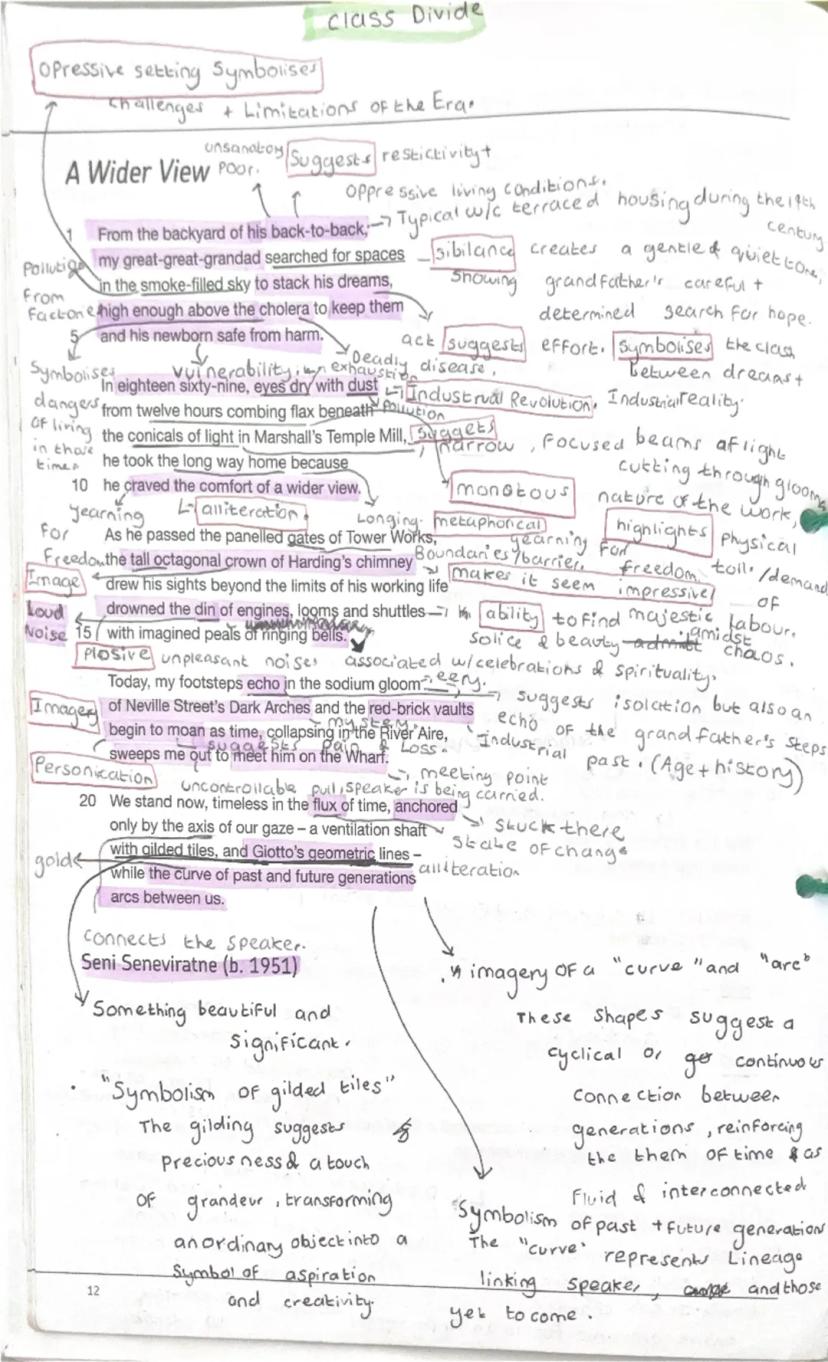 Class Divide
Opressive setting Symbolises
challenges + Limitations of the Era.
unsanatory
Poor.
Suggests restictivity +
oppressive living conditions.
A Wider View
Typical w/c terraced housing during the 19th
century
1 From the backyard of his back-to-back,
my great-great-grandad searched for spaces
in the smoke-filled sky to stack his dreams,
high enough above the cholera to keep them
5 and his newborn safe from harm.
sibilance creates a gentle & quiet tone,
showing grandfather's careful +
determined search for hope.
Pollution
From
Factories
act suggests effort. symbolises the clash
between dreams +
Industrial reality.
Symbolises
dangers
of living
in those
times
vulnerability
exhaustion
Deadly
disease.
In eighteen sixty-nine, eyes dry with dust
from twelve hours combing flax beneath
the conicals of light in Marshall's Temple Mill,
he took the long way home because
10 he craved the comfort of a wider view.
Industrual Revolution.
Pollution
suggets
narrow, focused beams of light
cutting through gloom
monotous nature of the work,
highlights physical
toll/demand
of
labour.
yearning
For
Freedom.
alliteration.
Longing.
metaphorical
Boundaries/barrier
yearning for
freedom.
As he passed the panelled gates of Tower Works,
the tall octagonal crown of Harding's chimney
drew his sights beyond the limits of his working life
drowned the din of engines, looms and shuttles
15 with imagined peals of ringing bells.
makes it seem impressive
Image
Loud
Noise
ability to find majestic
solice & beauty amidst chaos.
Plosive unpleasant noises
associated w/celebrations & spirituality.
Today, my footsteps echo in the sodium gloom
of Neville Street's Dark Arches and the red-brick vaults
begin to moan as time, collapsing in the River Aire,
sweeps me out to meet him on the Wharf.
eery.
suggests isolation but also an
echo of the grandfather's steps
Industrial past. (Age + history)
Imagery
mystery.
suggests pain & Loss.
Personication
uncontrollable pull, speaker is being carried.
meeting point
20 We stand now, timeless in the flux of time, anchored
only by the axis of our gaze – a ventilation shaft
with gilded tiles, and Giotto's geometric lines –
while the curve of past and future generations
arcs between us.
stuck there
state of change
gold
alliteration
connects the speaker.
Seni Seneviratne (b. 1951)
Something beautiful and
significant.
"Symbolism of gilded tiles"
The gilding suggests
Preciousness & a touch
of grandeur, transforming
an ordinary object into a
Symbol of aspiration
and creativity.
imagery of a "curve" and "arc"
These shapes suggest a
cyclical or continuous
connection between
generations, reinforcing
the them of time as
Fluid & interconnected
Symbolism of past + future generation
The "curve" represents Lineage
linking speaker, and those
yet to come.
12